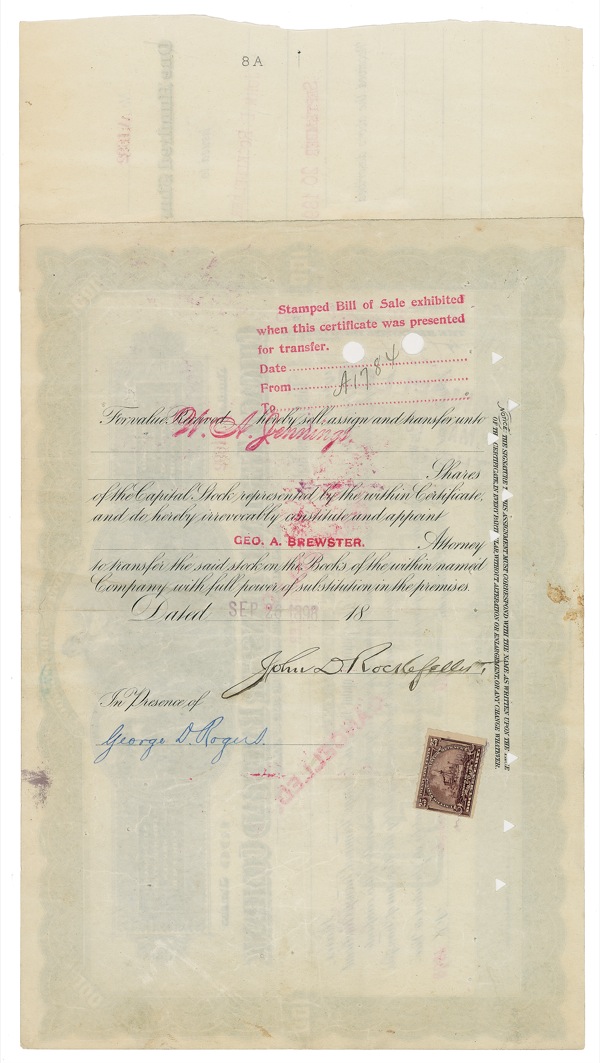 8A
Stamped Bill of Sale exhibited
when this certificate was presented
for transfer.
Date
From A1784
To
For value Received hereby sell, assign and transfer unto
W. A. Jennings.
Shares
of the Capital Stock represented by the within Certificate,
and do hereby irrevocably constitute and appoint
GEO. A. BREWSTER. Attorney
to transfer the said stock on the Books of the within named
Company with full power of substitution in the premises.
Dated SEP 18
John D. Rockefeller.
In Presence of
George D. Rogers.
CANCELLED
NOTICE THE SIGNATURE THIS ASSIGNMENT MUST CORRESPOND WITH THE NAME AS WRITTEN UPON THE
OF THE CERTIFICATE IN EVERY PARTICULAR WITHOUT ALTERATION OR ENLARGEMENT, OR ANY CHANGE WHATEVER.